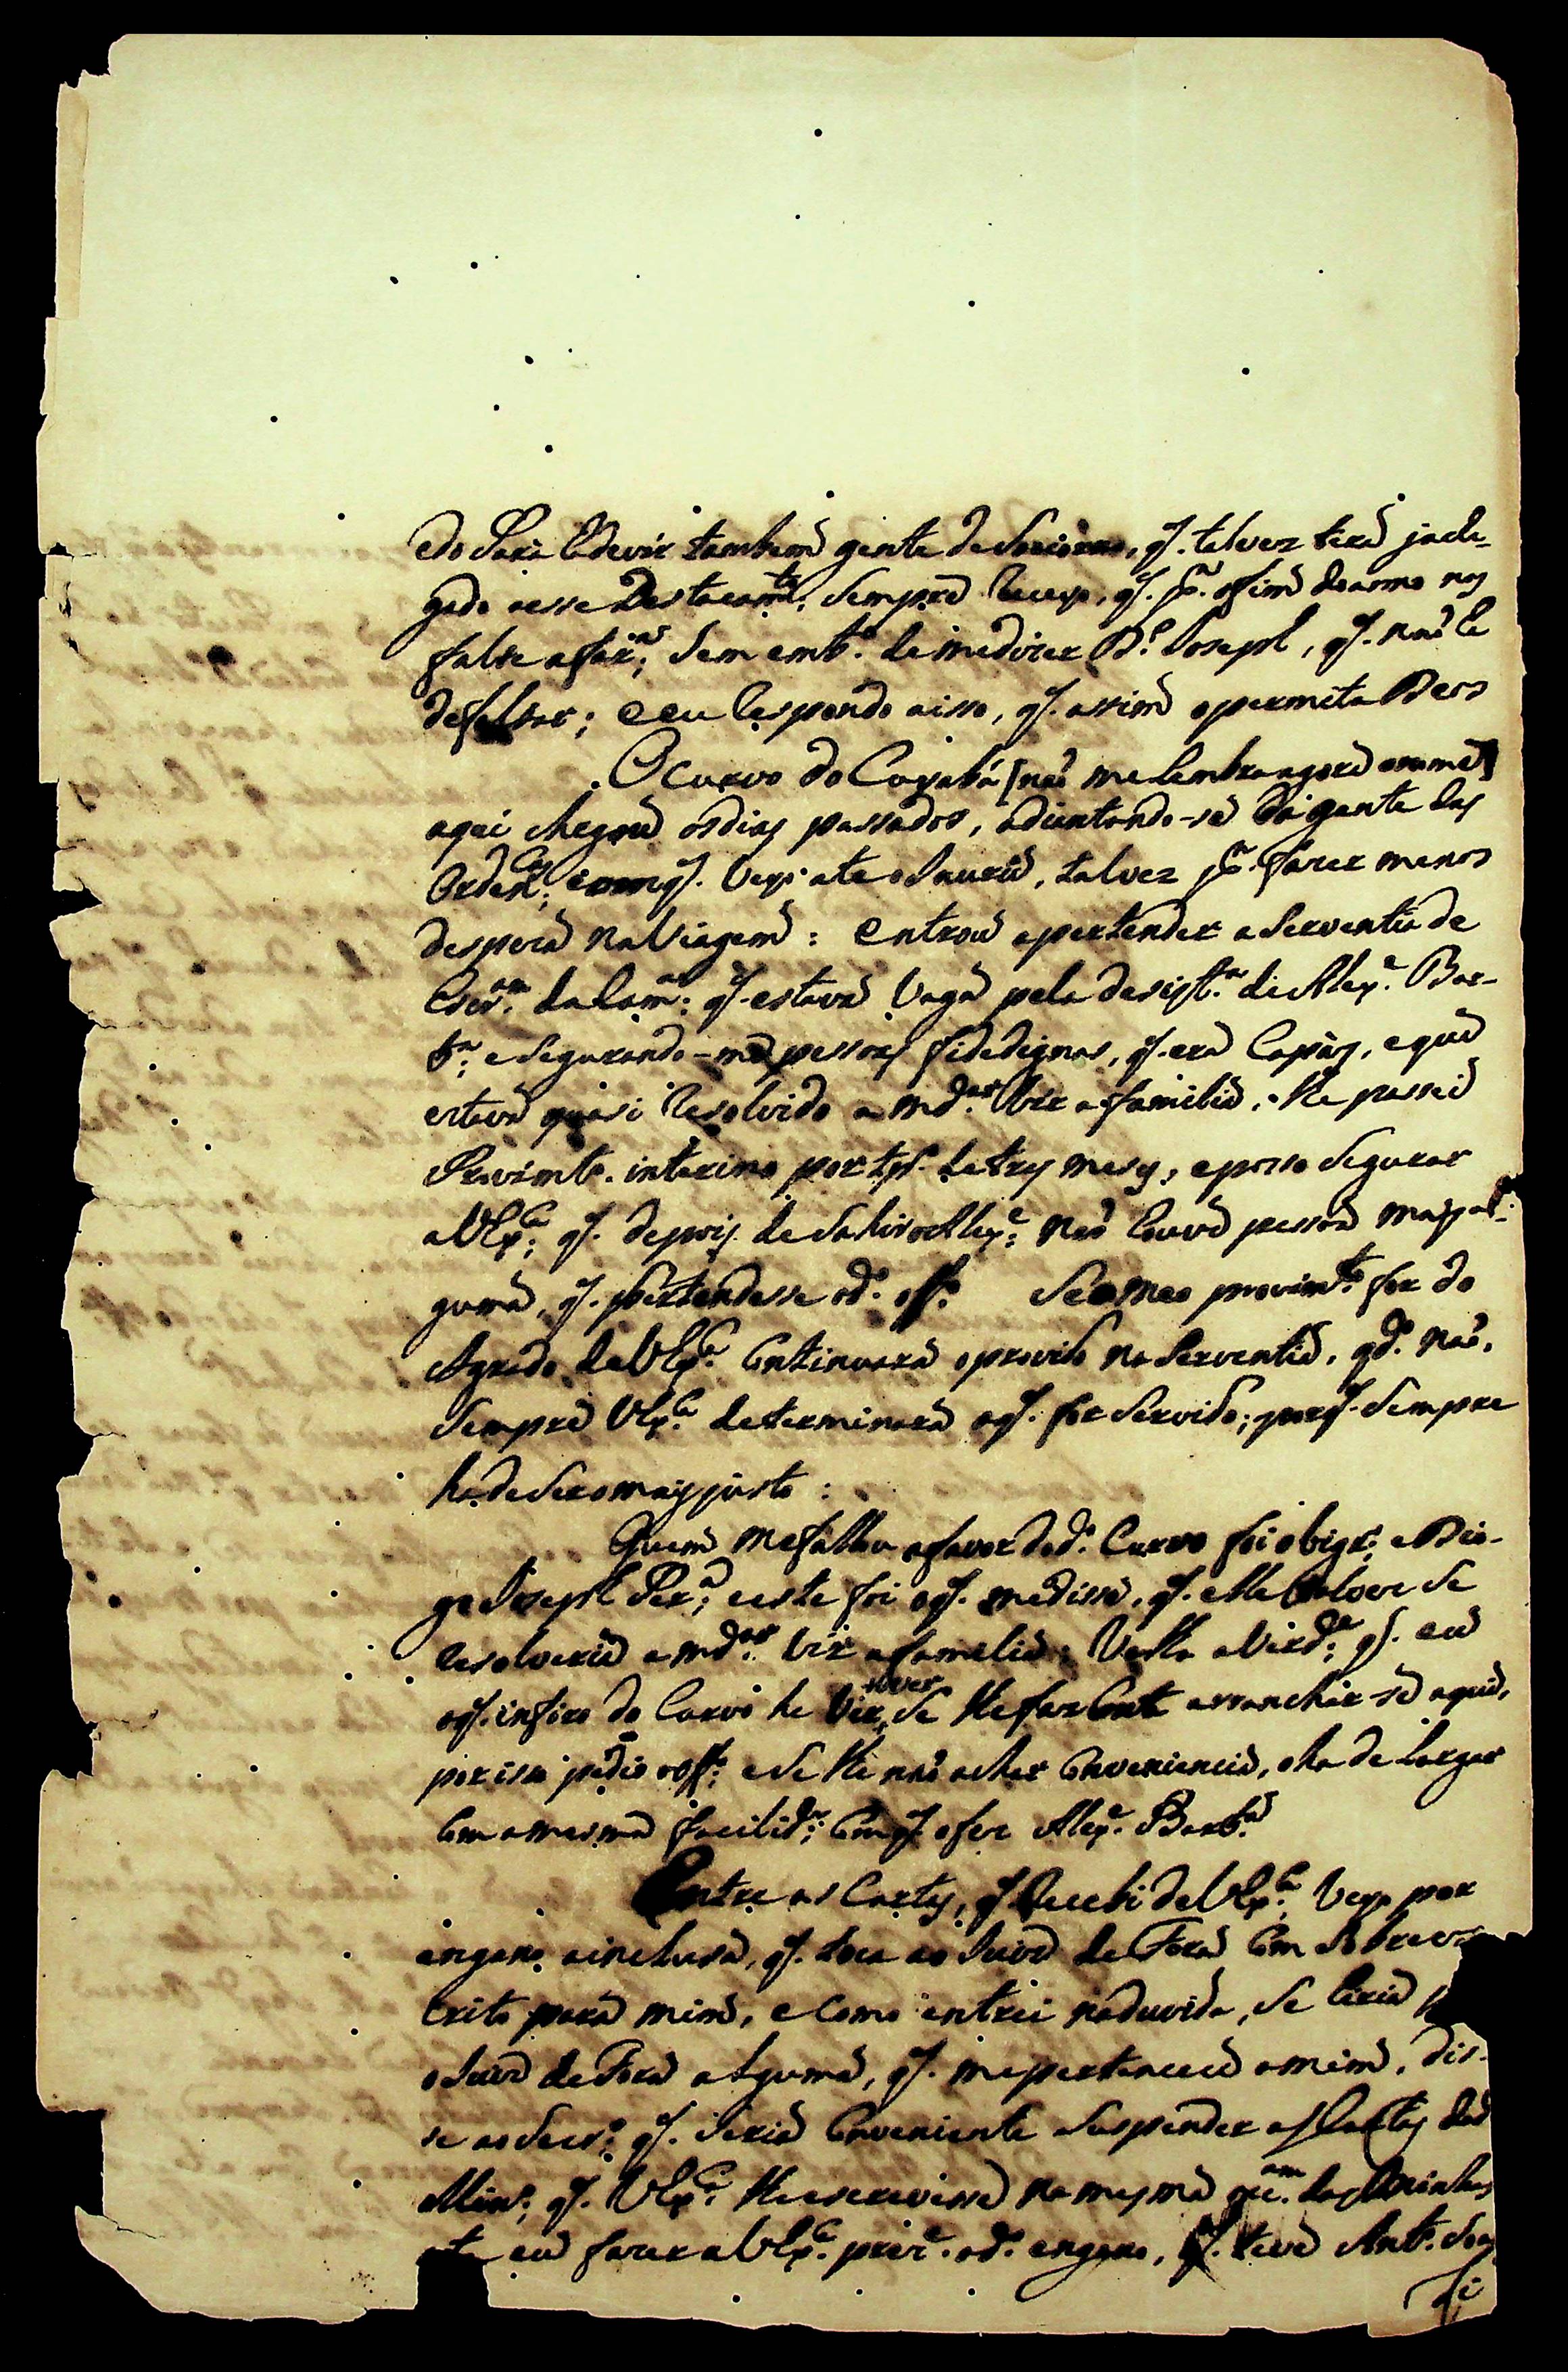 do Pará hadevir tambem gente de Socorro, q̃. talvez terá jache-
gado aesse Destacamto. Sempre Receyo, q̃. pa. ofim doanno nos
falte afara; Sem embo. de medizer Do. Joseph, q̃. naõ he
defaltar; eeu Respondo aisso, q̃. assim opermita Deos
Ocurvo do Cuyabá [naõ me Lembra agora onome]
aqui chegou osdias passados, adiantando-se da gente das
Ordeñs, comq̃. veyo ate oJaurú, talvez pa. fazer menos
despeza na Viagem: Entrou apertender aServentia de
Escram. daCama. q̃. estava Vaga pela desista. de Alexe. Bar-
ba. e Segurando-me pessoas fidedignas, q̃. era Capáz, eque
estava quasi Resolvido a mdar. Vir afamilia, lhe passei
Provimto. interino por tpo. detres mezes, eposso Segurar
aVExca. q̃. depois de Sahir oAlexe. naõ houve pessoa mais al-
guma, q̃. pertendesse od. offo. Seomeo provimto. for do
Agrado deVExca. Continuará oprovido na Serventia, qdo. naõ,
Sempre VExca. determinará oq̃. for Servido; porq̃. Sempre
hadeSer omais justo:
Quem mefallou afavor dodo. Curvo foi oVigro. e Dio-
go Joseph Pera. eeste foi oq̃. medisse, q̃. elle talvez Se
Resolveria a mdar. Vir afamilia; Valha aVerde. q̃. eu
oq̃. infiro do Curvo he Vir ver Se lhefaz Conta arranchar-se aqui,
porisso pedio ooffo. eSe lhe naõ achar Conveniencia, oha de Largar
Com amesma facilide. Comq̃. ofez Alexe. Barba.
Entre as Cartas, q̃. Recebi deVExca. Veyo por
engano ainclusa, q̃. toca ao Juiz de Fora Com Sobreesc
crito para mim, e Como entrei naduvida, Se teria
oJuiz de Fora alguma, q̃. mepertencece amim, dis-
se aoSecro. q̃. Seria Conveniente Suspender asCartas do
Mino. q̃. VExca. lhe escrevesse na mesma ocam. das minhas
ate eu fazer aVExca. preze. odo. engano, q̃. teve Anto. Soa
di